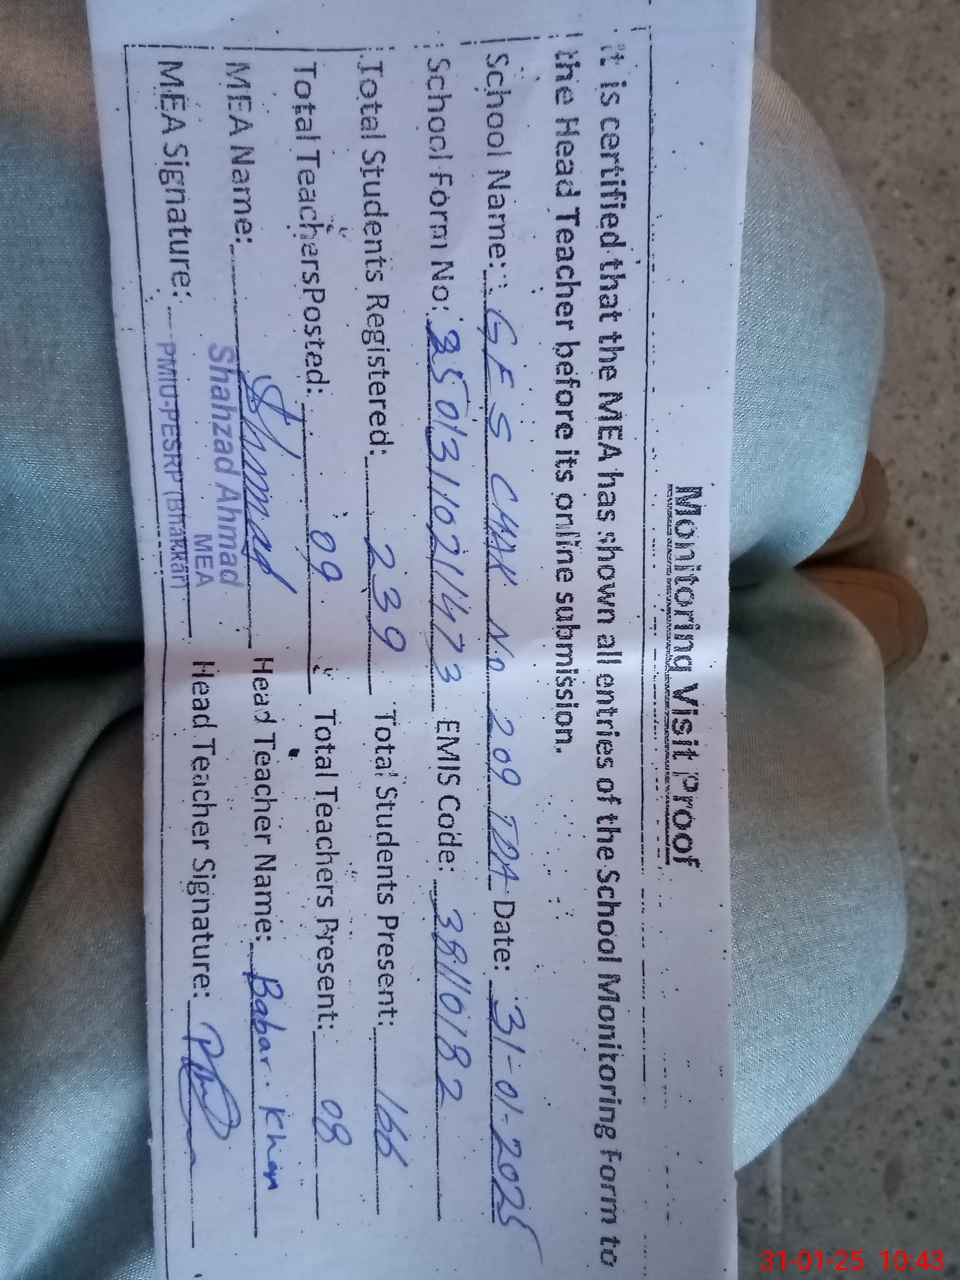 Monitoring Visit Proof
It is certified that the MEA has shown all entries of the School Monitoring Form to
the Head Teacher before its online submission.
School Name: GES CHAK No 209 TDA Date: 31-01-2025
School Form No: 25013110211473 EMIS Code: 38110182
Total Students Registered: 239 Total Students Present: 166
Total Teachers Posted: 09 Total Teachers Present: 08
MEA Name: Ahmad Head Teacher Name: Babar Khan
Shahzad Ahmad
MEA
MEA Signature: Head Teacher Signature:
PMIU-PESRP (Bhakkar)
31-01-25 10:43